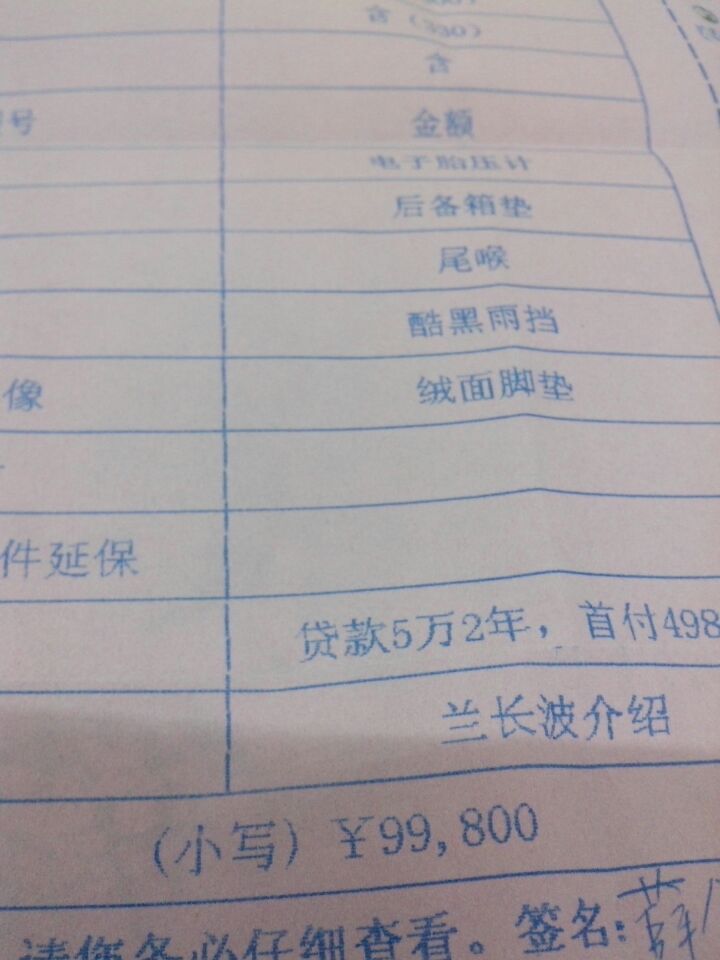 含（330）
含
号 金额
电子胎压计
后备箱垫
尾喉
酷黑雨挡
像 绒面脚垫
件延保
贷款5万2年，首付498
兰长波介绍
（小写）￥99,800
请您务必仔细查看。签名:薛